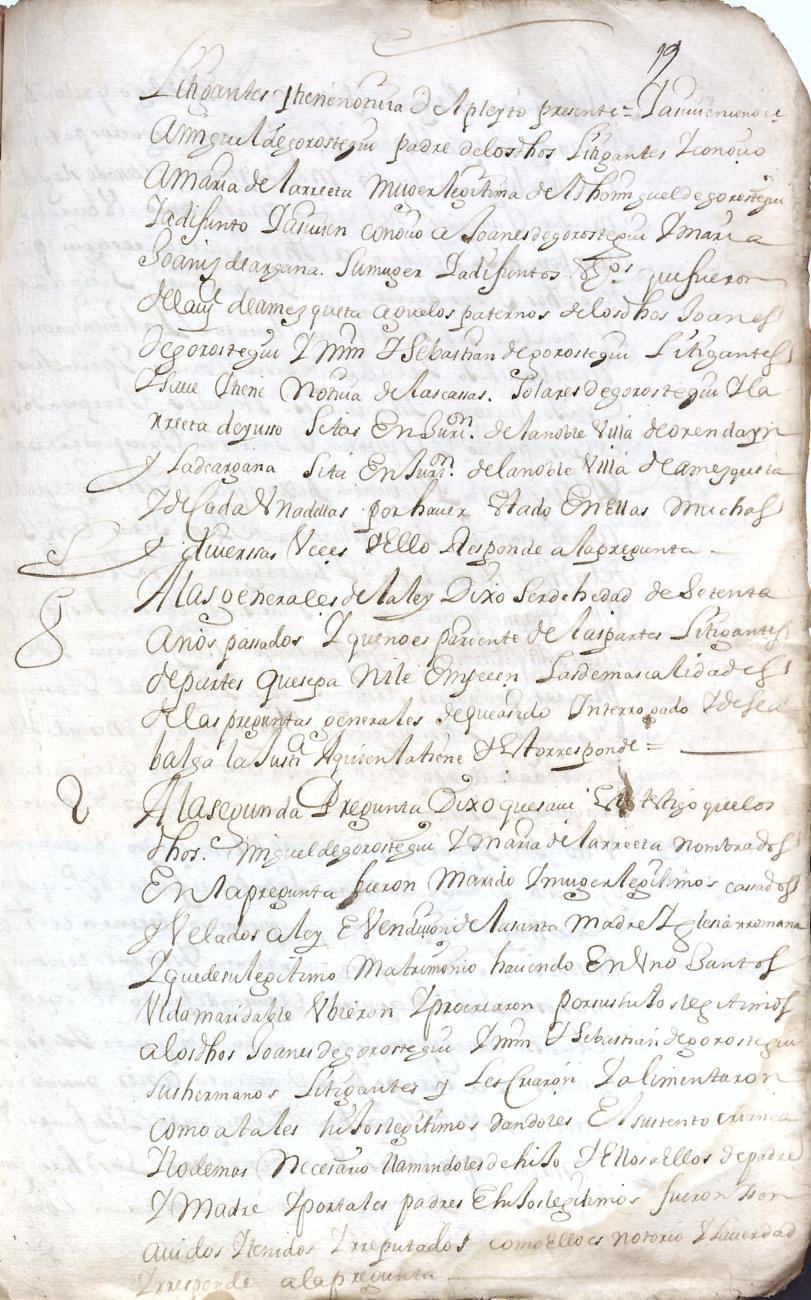 19
Litigantes y tiene noticia del pleyto presente = y asimismo conoce
a Miguel de gorostegui padre de los dhos Litigantes y conocio
a maria de larreeta muger legitima del dho miguel de gorostegui
ya difunto y asimismo conocio a Joanes de gorostegui y maria
Joaniz de argana. su muger ya difuntos que fueron
de la de amezqueta aguelos paternos de los dhos Joanes
de gorostegui y mrn y Sebastian de gorostegui Litigantes
y save y tiene noticia de las cassas. Solares de gorostegui y la
rreeta de yusso sitas En Juron. de la noble Villa de orendayn
y la de argana sita En Juron. de la noble Villa de amezqueta
y de Cada Una dellas por haver Estado En Ellas muchas
y diverssas Veces y Ello Responde a la pregunta
A las generales de la ley Dixo ser de hedad de Setenta
años passados y que no es pariente de las partes Litigantes
de partes que sepa Ni le Empecen las demas calidades
de las preguntas generales de que a sido Interrogado y desea
balga la Justa A quien la tiene y Esto rresponde =
2 A la segunda Pregunta Dixo que save Este testigo que los
dhos. Miguel de gorostegui y maria de larreeta nombrados
En la pregunta fueron Marido y muger legitimos cassados
y Velados a ley E Vendicion de la santa Madre Yglesia rromana
y que de su legitimo Matrimonio haciendo En Uno Juntos
Vida maridable Ubieron y procriaron por sus hijos legitimos
a los dhos Joanes de gorostegui y mrn y Sebastian de gorostegui
sus hermanos Litigantes y Les Criaron y alimentaron
como a tales hijos legitimos dandoles El sustento crianca
y lo demas Necesario llamandoles de hijo y Ellos a Ellos de padre
y Madre y por tales padres E hijos legitimos fueron y son
avidos y tenidos y rreputados como Ello es notorio y la verdad
y rresponde a la pregunta